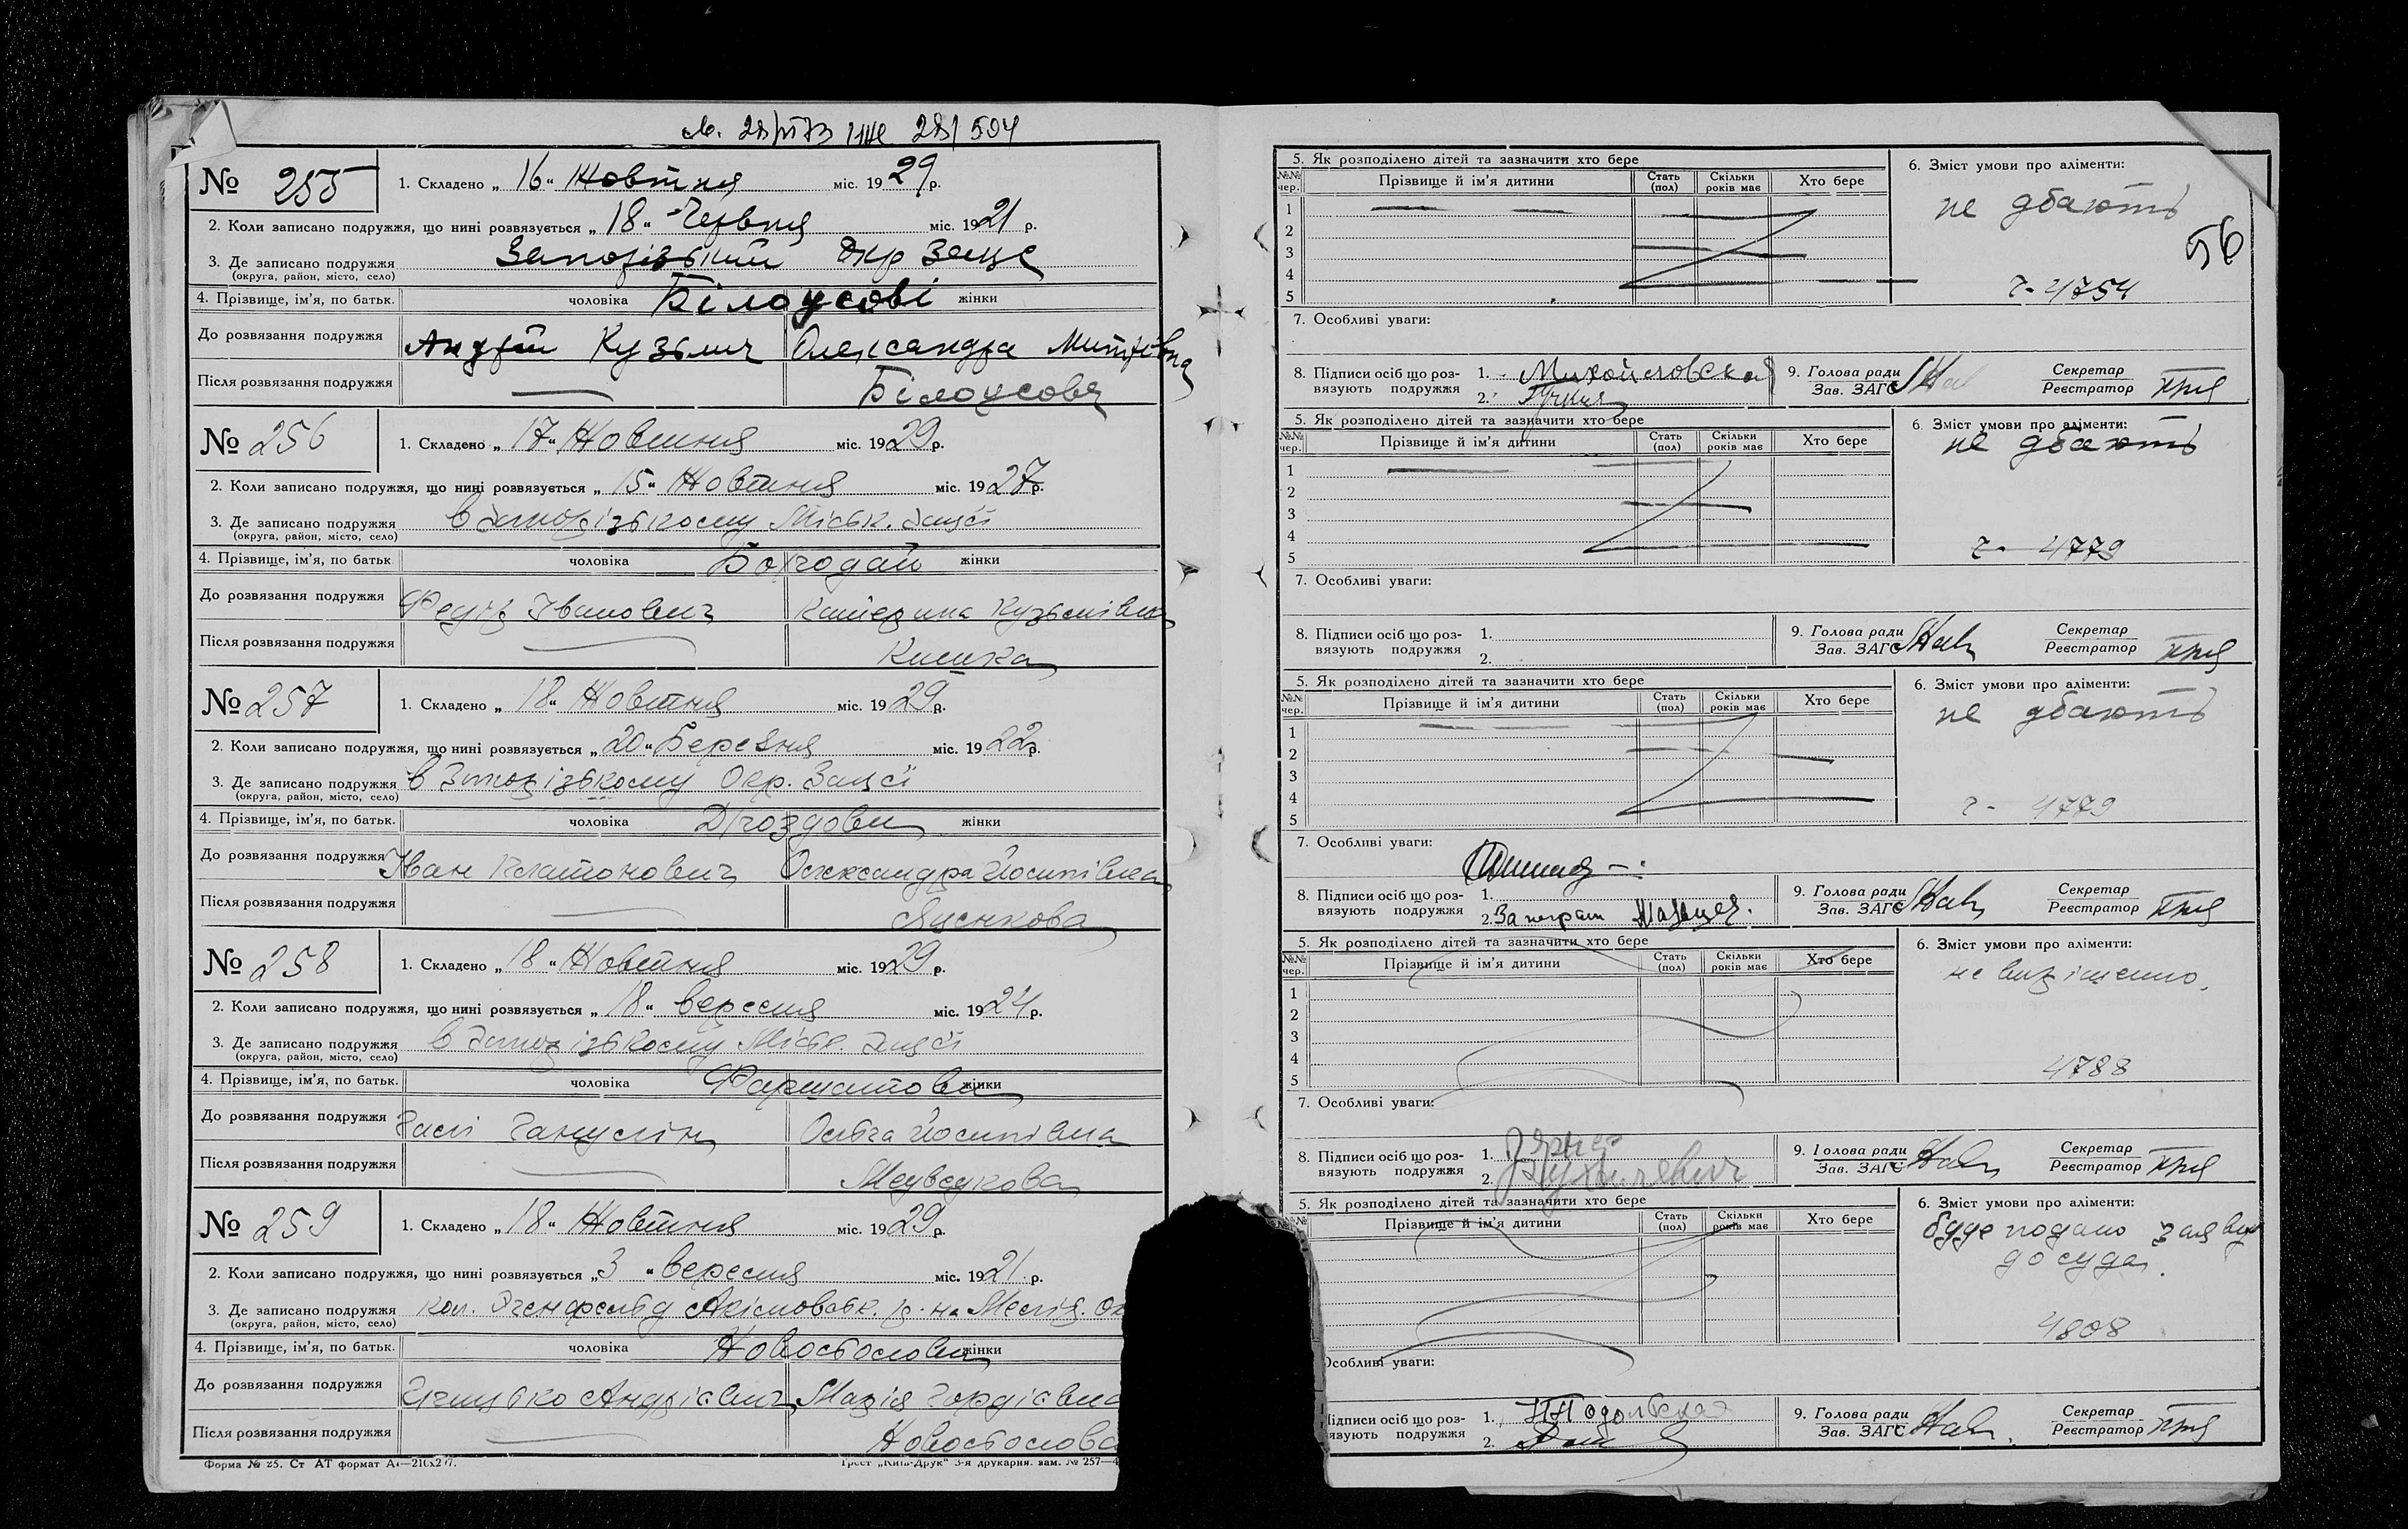 № 255
1. Складено „ 16 “ Жовтня міс. 19 29 р.
2. Коли записано подружжя, що нині розвязується „ 18 “ Червня міс. 19 21 р.
3. Де записано подружжя Запорізький Окр Загс
(округа, район, місто, село)
4. Прізвище, ім'я, по батьк. чоловіка Білоусові жінки
До розвязання подружжя Андрій Кузьмич Олександра Митрівна
Після розвязання подружжя — Білоусова
№ 256
1. Складено „ 17 “ Жовтня міс. 19 29 р.
2. Коли записано подружжя, що нині розвязується „ 15 “ Жовтня міс. 19 27 р.
3. Де записано подружжя в Запорізькому Міськ. Загсі
(округа, район, місто, село)
4. Прізвище, ім'я, по батьк чоловіка жінки
До розвязання подружжя Федір Іванович Катерина Кузьмівна
Після розвязання подружжя —
№ 257
1. Складено „ 18 “ Жовтня міс. 19 29 р.
2. Коли записано подружжя, що нині розвязується „ 20 “ Березня міс. 19 22 р.
3. Де записано подружжя в Запорізькому Окр. Загсі
(округа, район, місто, село)
4. Прізвище, ім'я, по батьк. чоловіка Дроздови жінки
До розвязання подружжя Іван Платонович Олександра Йосипівна
Після розвязання подружжя — Яценкова
№ 258
1. Складено „ 18 “ Жовтня міс. 19 29 р.
2. Коли записано подружжя, що нині розвязується „ 18 “ вересня міс. 19 24 р.
3. Де записано подружжя в Запорізькому Міськ. Загсі
(округа, район, місто, село)
4. Прізвище, ім'я, по батьк. чоловіка жінки
До розвязання подружжя Ольга Йосипівна
Після розвязання подружжя — Медведкова
№ 259
1. Складено „ 18 “ Жовтня міс. 19 29 р.
2. Коли записано подружжя, що нині розвязується „ 3 “ вересня міс. 19 21 р.
3. Де записано подружжя кол. Акімовськ. р-н Меліт. Ок
(округа, район, місто, село)
4. Прізвище, ім'я, по батьк. чоловіка жінки
До розвязання подружжя Андрієвич Марія Гордієвна
Після розвязання подружжя —
Форма № 25. Ст АТ формат А4—210х297.
Трест „Київ-Друк“ 3-я друкарня. зам. № 257—4
5. Як розподілено дітей та зазначити хто бере
6. Зміст умови про аліменти:
№№ чер. Прізвище й ім'я дитини Стать (пол) Скільки років має Хто бере
не дбають
1
2
56
3
4
4754
5
7. Особливі уваги:
8. Підписи осіб що роз-вязують подружжя 1. Михайловская 2.
9. Голова ради Зав. ЗАГС Секретар Реєстратор
5. Як розподілено дітей та зазначити хто бере
6. Зміст умови про аліменти:
№№ чер. Прізвище й ім'я дитини Стать (пол) Скільки років має Хто бере
не дбають
1
2
3
4
5
4779
7. Особливі уваги:
8. Підписи осіб що роз-вязують подружжя 1. 2.
9. Голова ради Зав. ЗАГС Секретар Реєстратор
5. Як розподілено дітей та зазначити хто бере
6. Зміст умови про аліменти:
№№ чер. Прізвище й ім'я дитини Стать (пол) Скільки років має Хто бере
не дбають
1
2
3
4
4779
5
7. Особливі уваги:
8. Підписи осіб що роз-вязують подружжя 1. 2.
9. Голова ради Зав. ЗАГС Секретар Реєстратор
5. Як розподілено дітей та зазначити хто бере
6. Зміст умови про аліменти:
№№ чер. Прізвище й ім'я дитини Стать (пол) Скільки років має Хто бере
не вирішено.
1
2
3
4
4788
5
7. Особливі уваги:
8. Підписи осіб що роз-вязують подружжя 1. 2.
9. Голова ради Зав. ЗАГС Секретар Реєстратор
5. Як розподілено дітей та зазначити хто бере
6. Зміст умови про аліменти:
№№ Прізвище й ім'я дитини Стать (пол) Скільки років має Хто бере
буде подано заяву
до суда.
4808
Особливі уваги:
Підписи осіб що роз-вязують подружжя 1. Подольская 2.
9. Голова ради Зав. ЗАГС Секретар Реєстратор